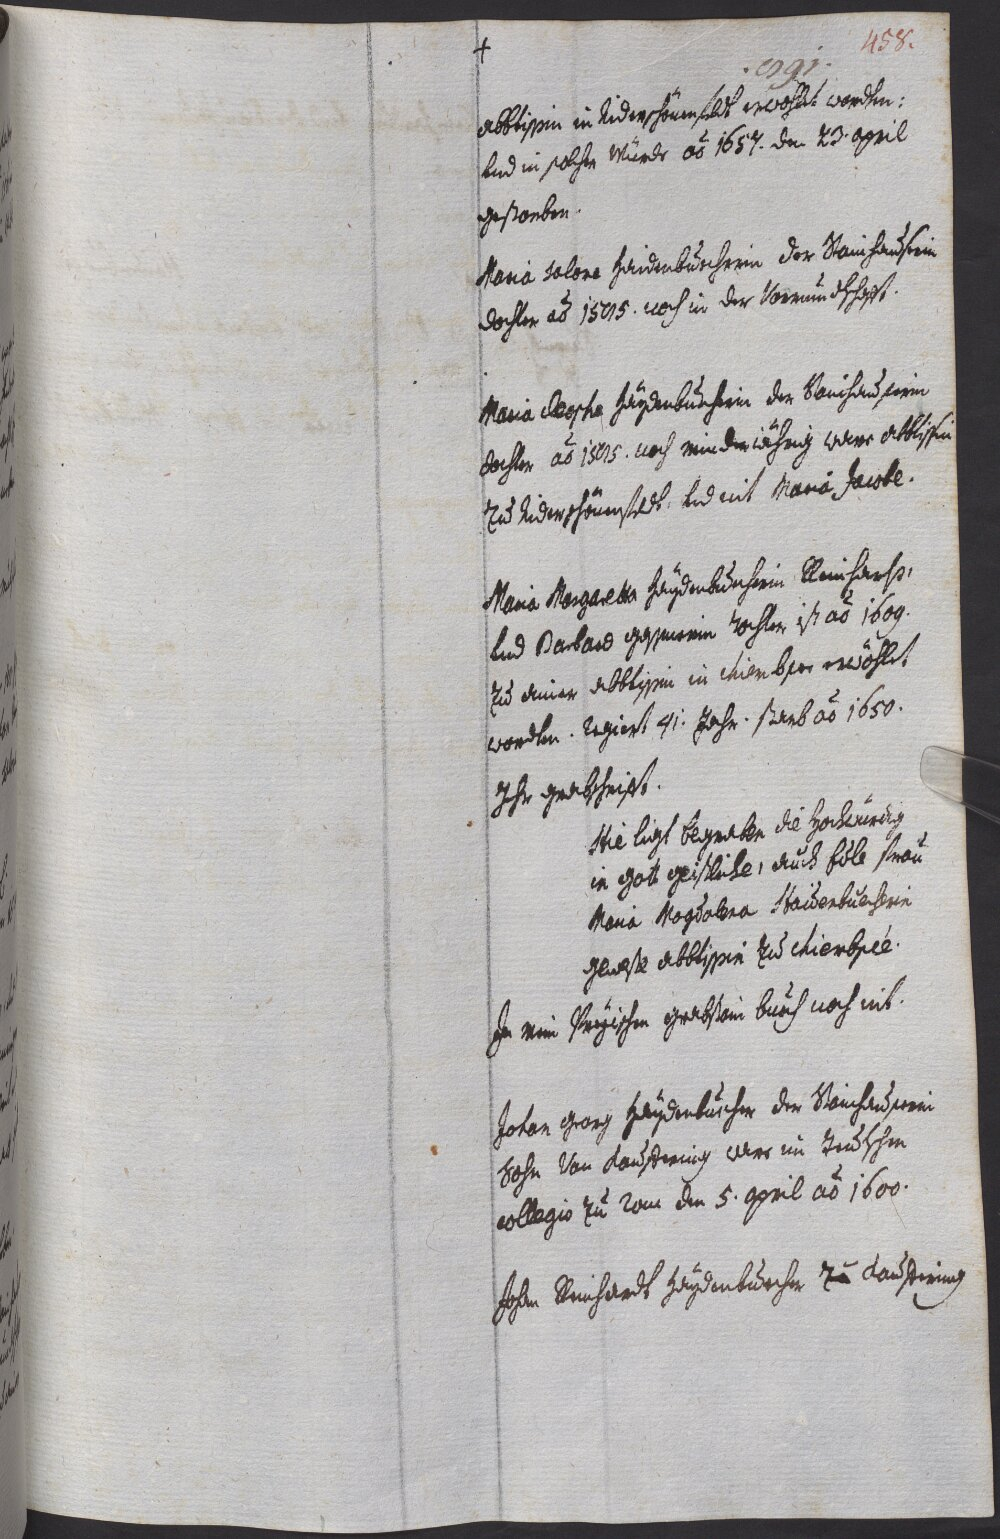 458.
+
abbtissin in Niderschönenfeldt erwöhlet worden:
und in solcher Würde aō 1657. den 23. april
gestorben.
Maria Salome Haidenbucherin der Stainhauserin
dochter aō 1595. noch in der Vormundtschafft.
Maria Cleophe Haydenbucherin der Stainhauserin
dochter aō 1595. noch minderjährig ware abbtissin
zu Niderschönenfeldt. und nit Maria Jacobe.
Maria Margaretha Haydenbucherin Reinhards,
und Barbara tochter ist aō 1609.
zu ainer abbtissin in Chiembsee erwöhlet
worden. regiert 41. Jahr. starb aō 1650.
Ihr grabschrifft.
Hie ligt begraben die Hochwürdig
in gott geistliche, auch Edle frau
Maria Magdalena Haidenbucherin
geweste abbtissin zu Chiembsee.
In mein Preyischen grabstain buech noch nit.
Johan Georg Haydenbucher der Stainhauserin
Sohn von Kaufering ware im Teutschen
collegio zu Rom den 5. april aō 1600.
Johan Reinhardt Haydenbucher zu Kaufering